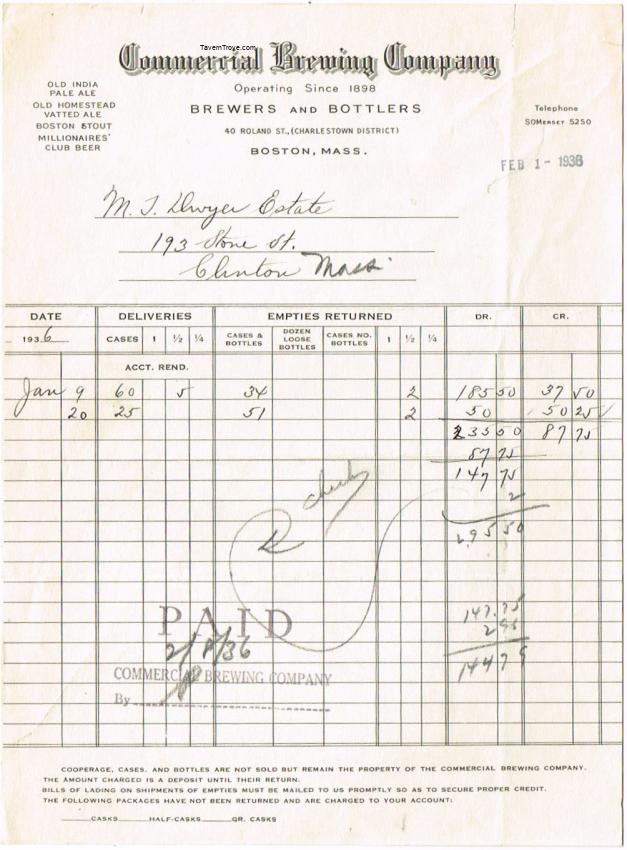 TavernTrove.com
Commercial Brewing Company
Operating Since 1898
BREWERS AND BOTTLERS
40 ROLAND ST., (CHARLESTOWN DISTRICT)
BOSTON, MASS.
OLD INDIA
PALE ALE
OLD HOMESTEAD
VATTED ALE
BOSTON STOUT
MILLIONAIRES'
CLUB BEER
Telephone
SOMERSET 5250
FEB 1 - 1936
M. J. Dwyer Estate
193 Stone St.
Clinton Mass.
DATE DELIVERIES EMPTIES RETURNED DR. CR.
1936 CASES 1 1/2 1/4 CASES & BOTTLES DOZEN LOOSE BOTTLES CASES NO. BOTTLES 1 1/2 1/4
ACCT. REND.
Jan 9 60 5 34 2 185 50 37 50
20 25 51 2 50 50 25
235 50 87 75
87 75
147 75
2
2 95 50
check
147.75
2 95
144 79
PAID
2/8/36
COMMERCIAL BREWING COMPANY
By
COOPERAGE, CASES, AND BOTTLES ARE NOT SOLD BUT REMAIN THE PROPERTY OF THE COMMERCIAL BREWING COMPANY.
THE AMOUNT CHARGED IS A DEPOSIT UNTIL THEIR RETURN.
BILLS OF LADING ON SHIPMENTS OF EMPTIES MUST BE MAILED TO US PROMPTLY SO AS TO SECURE PROPER CREDIT.
THE FOLLOWING PACKAGES HAVE NOT BEEN RETURNED AND ARE CHARGED TO YOUR ACCOUNT:
CASKS HALF-CASKS QR. CASKS